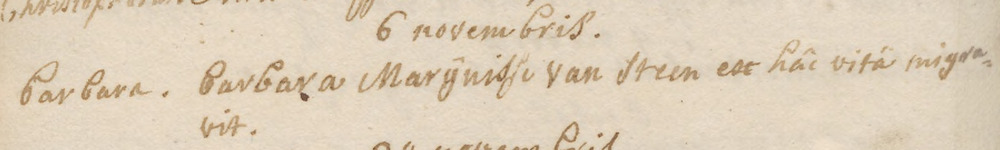 6 novembris.
barbara. barbara Marÿnisse van Steen ex hâc vitâ migra-
vit.
novembris